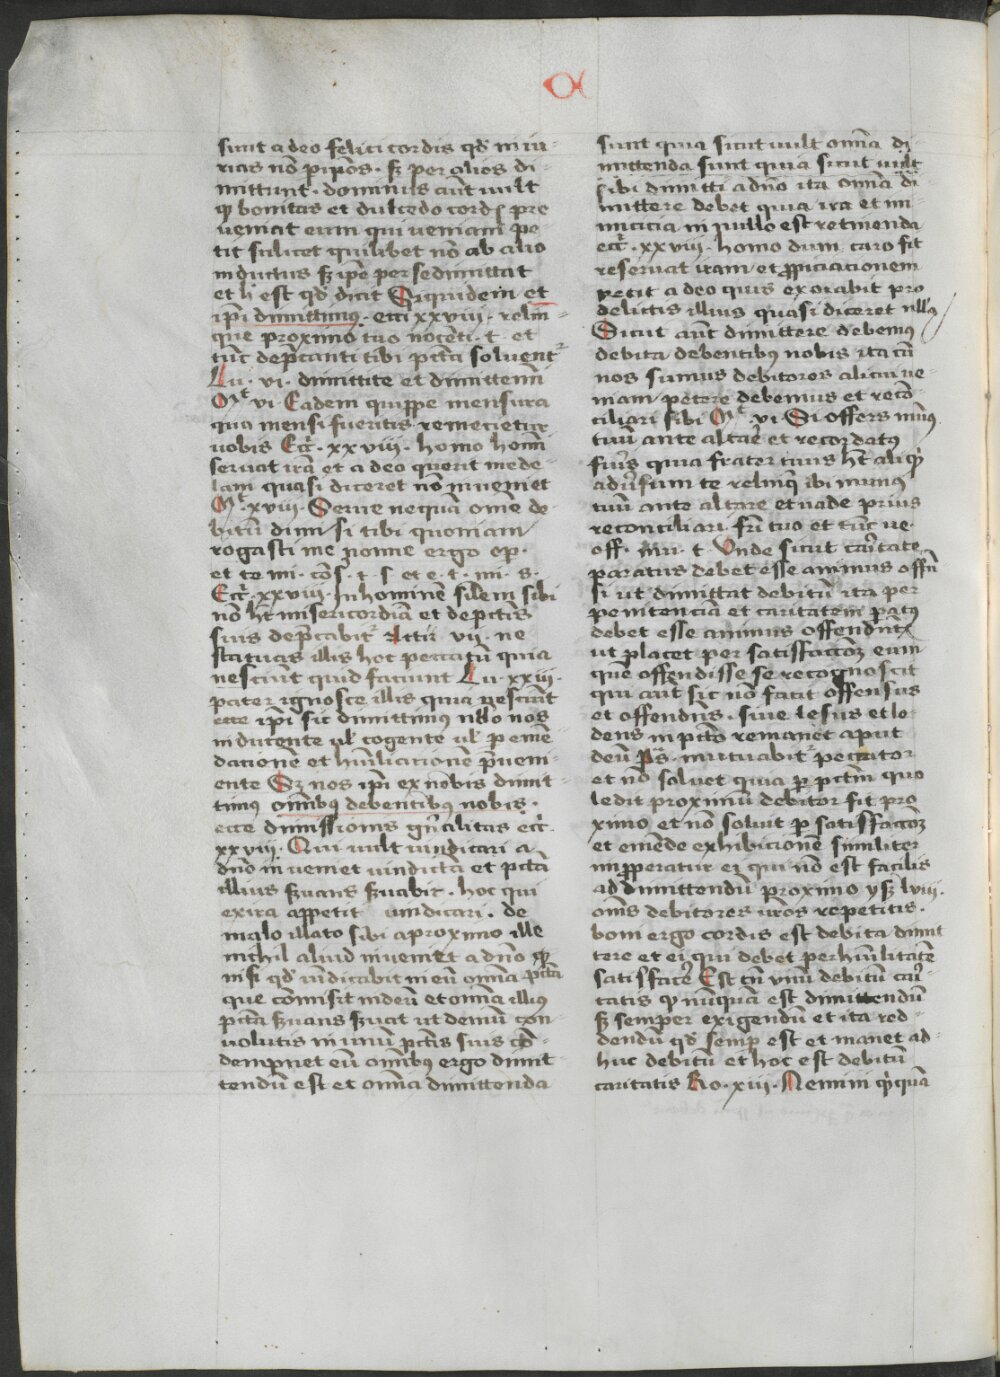 sunt a deo felici cordis qd iniu-
rias nō ꝓp̄os · sꝫ per alios di-
mittunt · dominus aūt uult
qͥ bonitas et dulcedo cordꝭ pre
ueniat eum qui ueniam pe-
tit scilicet quilibet nō ab alio
inductus sꝫ ip̄e per se dimittat
et h est qd dicit Siquidem et
ip̄i dimittimꝰ · ecci xxviii · relin-
que proximo tuo nocēti · t · et
tūc dep̄canti tibi pcta soluent᷑
Lu · vi · dimittite et dimittemī
Mͭ vi Eadem quippe mensura
qua mensi fueritis remecietur
uobis Ecc̄i · xxviii · homo homī
seruat irā et a deo querit mede-
lam quasi diceret nō inueniet
Mͭ · xviii · Serue nequā om̄e de-
bitū dimi si tibi quoniam
rogasti me nonne ergo op ·
et te mi · cōs · t · s et e · t · mi · s ·
Ecc̄i · xxviii · In hominē silem sibi
nō ht misericordiā et de pctis
suis dep̄cabit᷑ Actu vii · ne
statuas illis hoc peccatū quia
nesciunt quid faciunt Lu · xxiii ·
pater ignosce illis quia nesciūt
ecce ip̄i sic dimittimus nllo nos
inducente ul cogente ul p eme-
dacionē et humiliacionē p̄ueni-
ente Sꝫ nos ip̄i ex nobis dimit-
timꝰ omībꝰ debentibꝰ nobis ·
ecce dimissionis gn̄alitas ecc̄i ·
xxviii · Qui uult uindicari a
dn̄o inueniet uindictā et pctā
illius s̄uans s̄uabit · hoc qui
exira appetit uindicari · de
malo illato sibi a proximo ille
nichil aliud inueniet a dn̄o
nisi qd uīdicabit in eū omīa pctā
que cōmisit in deū et omīa illiꝰ
pctā s̄uans s̄uat ut demū con-
uolutis in unū pctis suis cō-
dempnet eū omībꝰ ergo dimit-
tendū est et omīa dimittenda
sunt quia sicut uult omīa di-
mittenda sunt quia sicut uult
sibi dimitti a dn̄o ita omīa di-
mittere debet quia ira et ini-
micicia in nullo est retinenda
ecc̄i · xxviii · homo dum caro sit
reseruat iram et ꝓpiciacionem
petit a deo quis exorabit pro
delictis illius quasi diceret nllꝰ
Sicut aūt dimittere debemꝰ
debita debentibꝰ nobis ita cū
nos sumus debitores alicui ue-
niam petere debemus et reco-
ciliari sibi Mͭ vi Si offers munꝰ
tuū ante altare et recordatꝰ
fuīs quia frater tuus ht aliqͥd
aduīsum te relinqͥ ibi munus
tuū ante altare et uade prius
reconciliari frī tuo et tūc ve-
off · mu · t · Unde sicut caritate
paratus debet esse animus offn̄
si ut dimittat debitū ita per
penitenciā et caritatem patꝰ
debet esse animus offendn̄t
ut placet per satisfaccōꝫ eum
quē offendisse se recognoscit
qui aūt sic nō facit offensus
et offendn̄s · siue lesus et le-
dens in pctō remanet aput
deū ps̄ · mutuabit᷑ peccator
et nō soluet quia p pctm quo
ledit proximū debitor fit pro-
ximo et nō soluit p satisfaccōꝫ
et emēde exhibicionē similiter
impperatur ei qui nō est facilis
ad dimittendū proximo ysa lviii ·
omīs debitores vr̄os repetitis ·
boni ergo cordis est debita dimit
tere et ei qui debet per huīlitatē
satisfacē Est tn̄ vnū debitū cari-
tatis qͥ nūquā est dimittendū
sꝫ semper exigendū et ita red-
dendū qd semp est et manet ad-
huc debitū et hoc est debitū
caritatis Ro · xiii · Nemini qͥquā